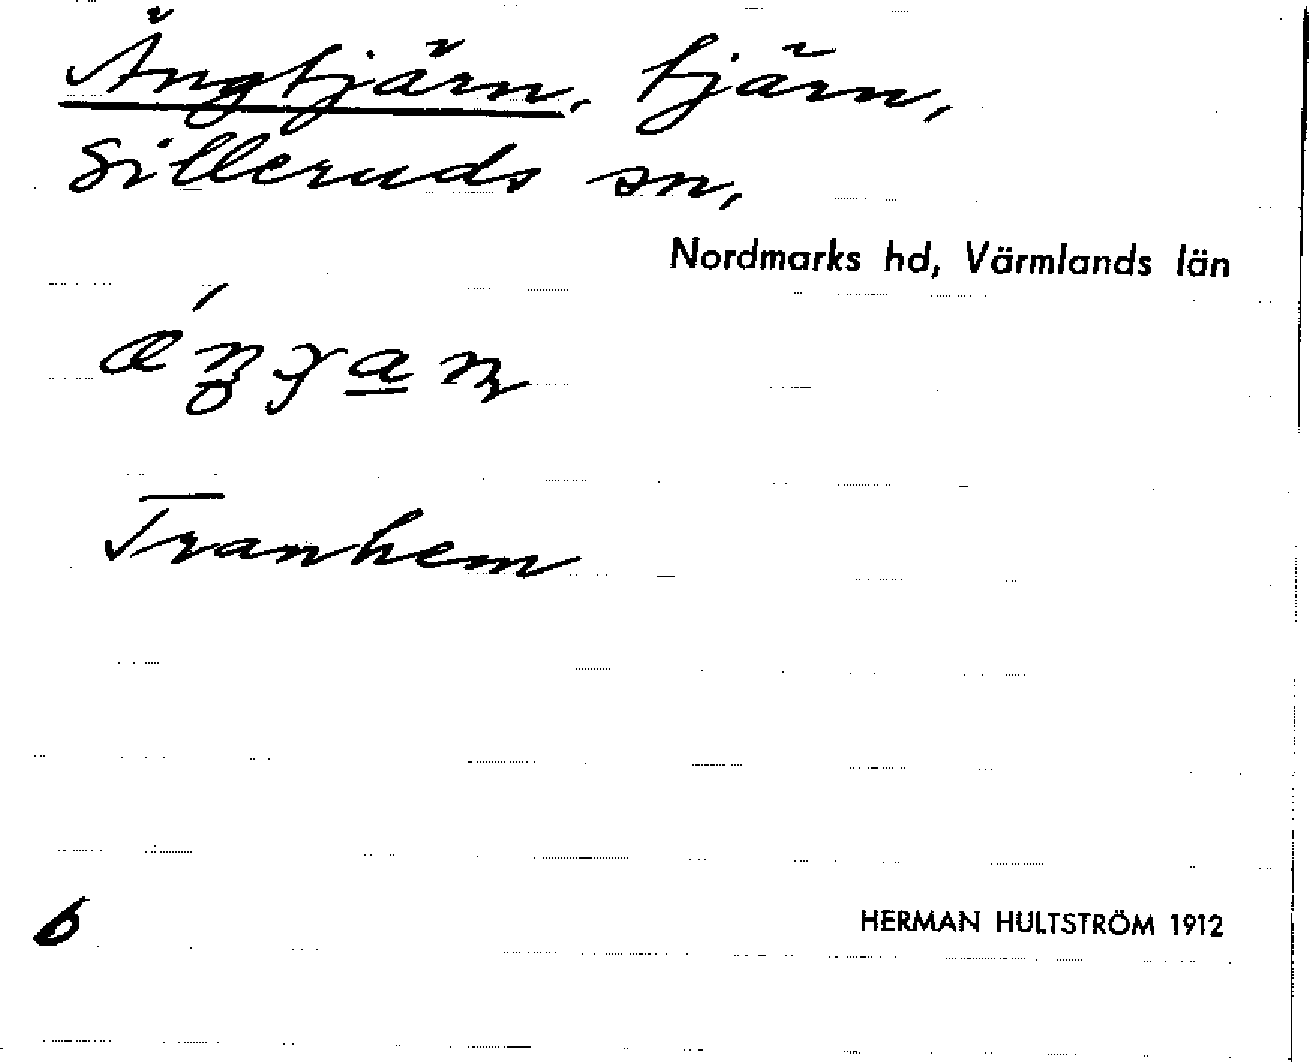 Ängtjärn, tjärn,
Silleruds sn,
Nordmarks hd, Värmlands län
Tranhem
6
HERMAN HULTSTRÖM 1912